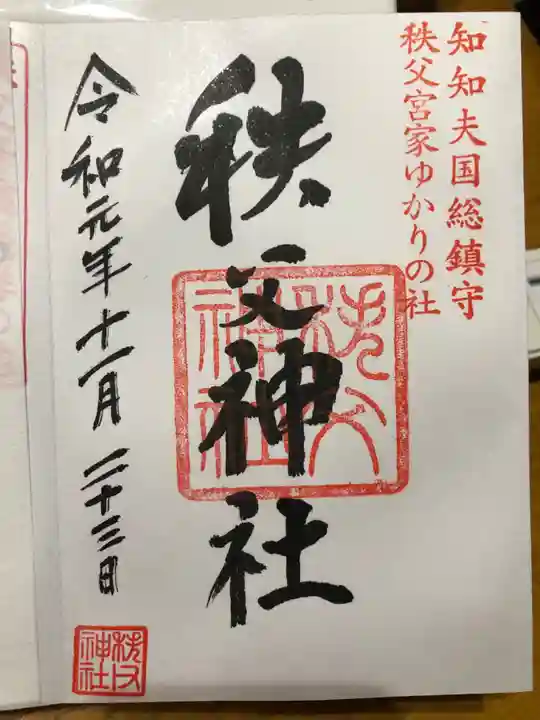 知知夫国総鎮守
秩父宮家ゆかりの社
秩父神社
秩父神社
令和元年十一月二十三日
秩父神社